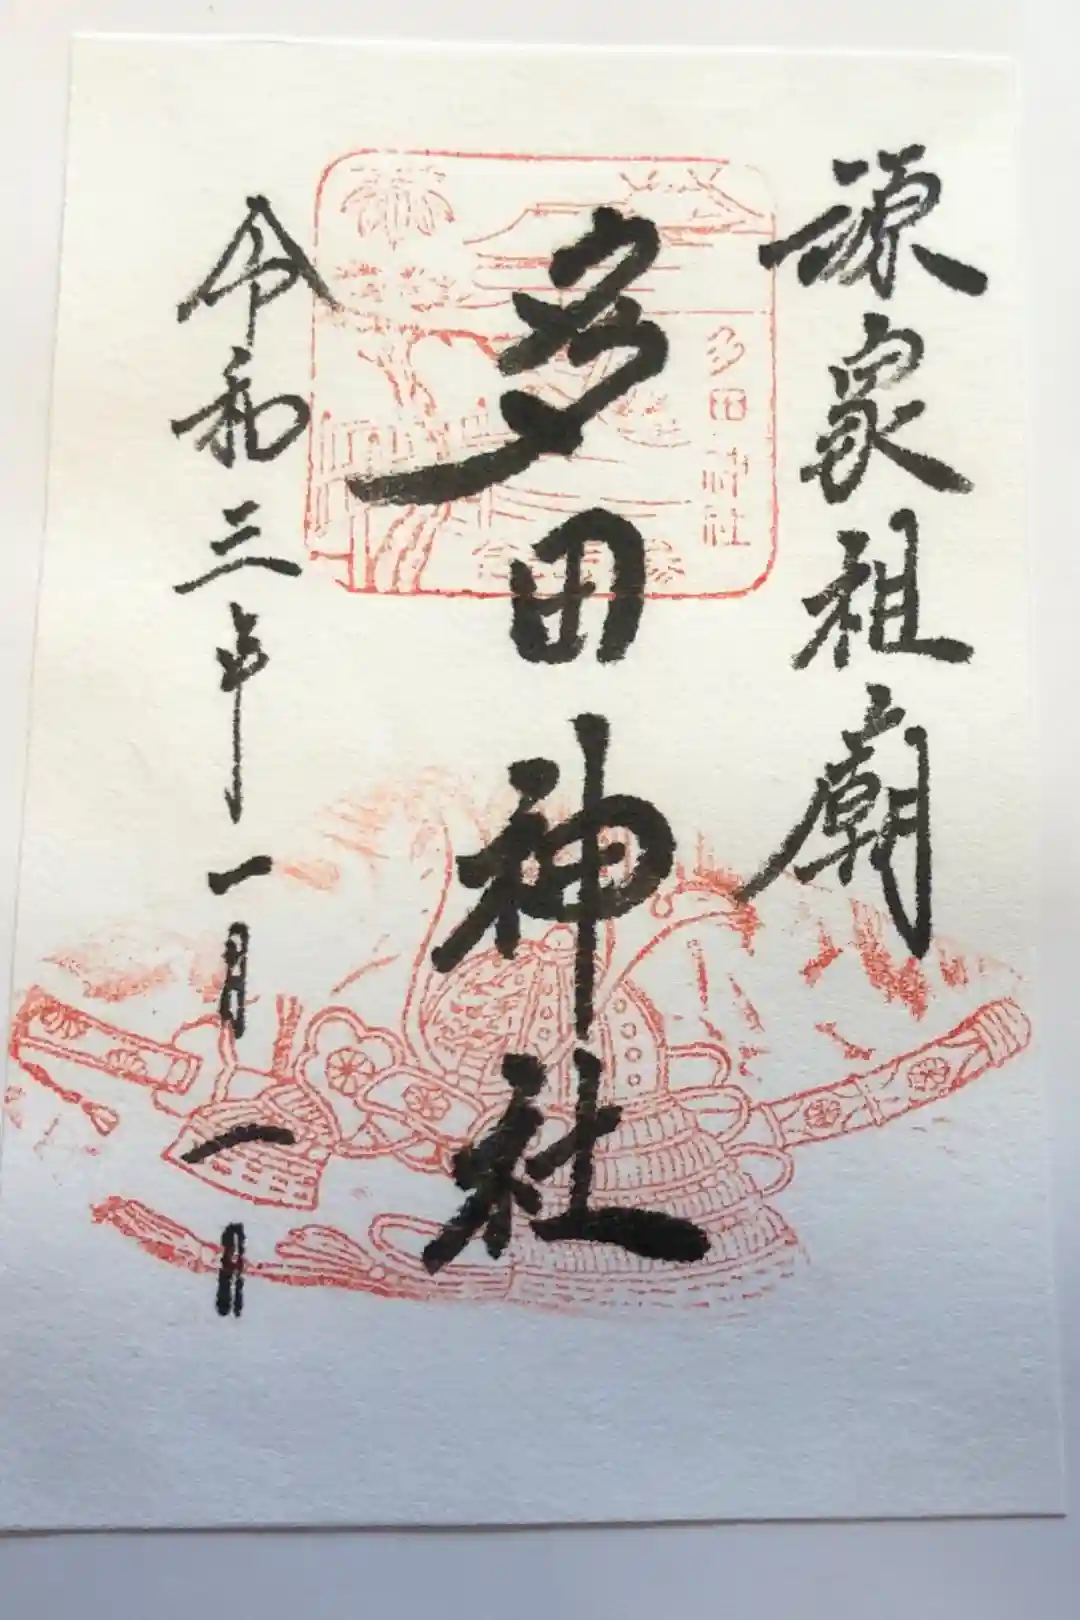 源家祖廟
多田神社
多田神社
令和三年一月一日